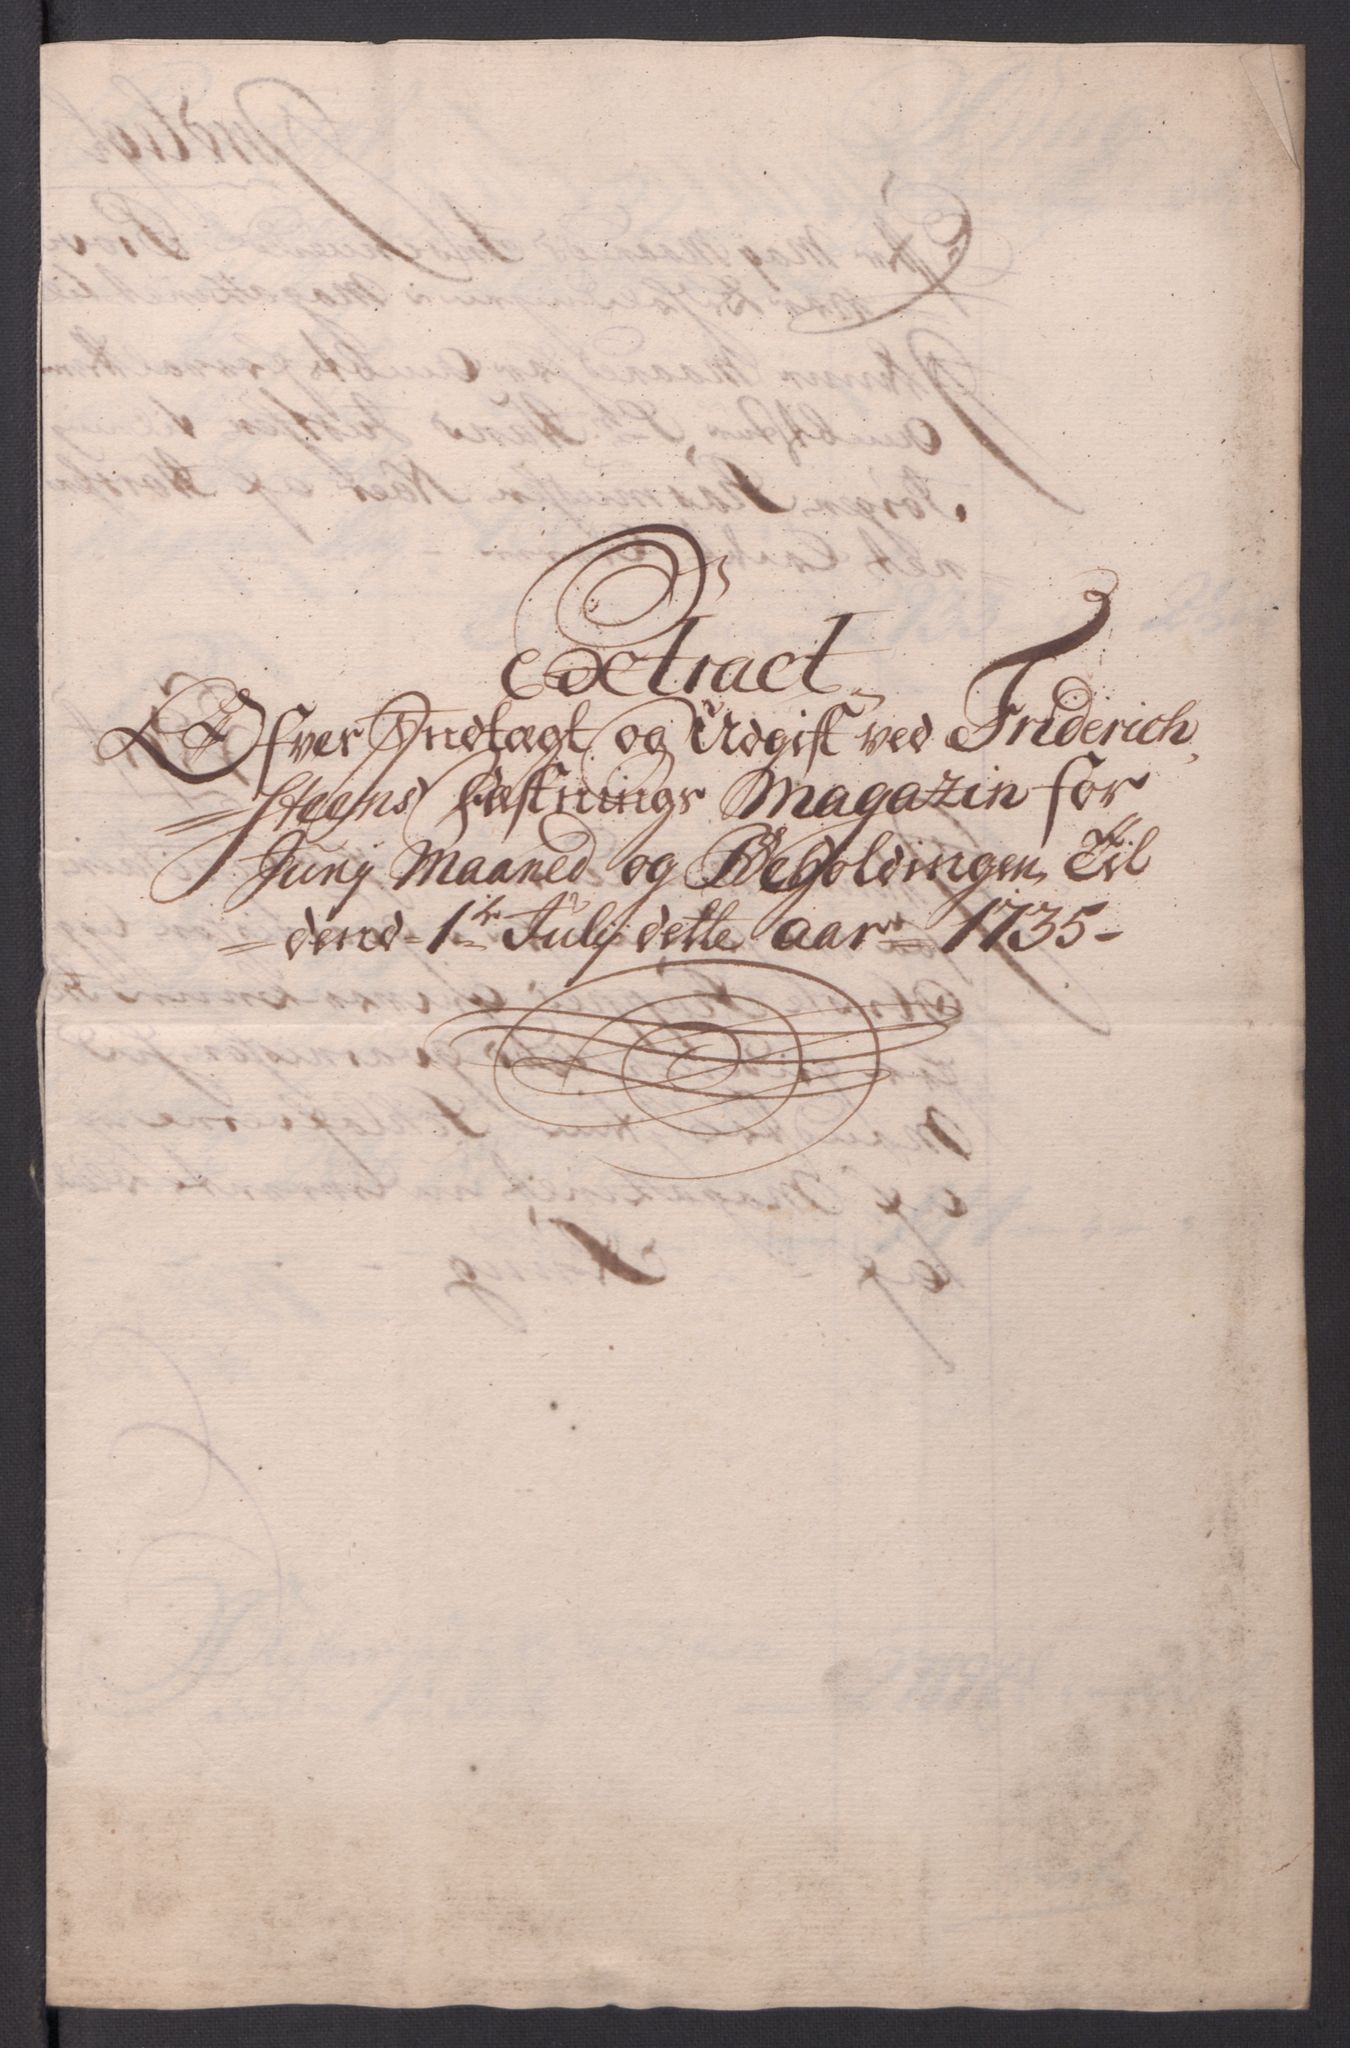 Extract
Ofver Indtægt og Udgift ved Friderich,
=steens Fæstnings Magazin for
Junij Maaned og Beholdingen Til
= dend 1te Julij dette aar= 1735-